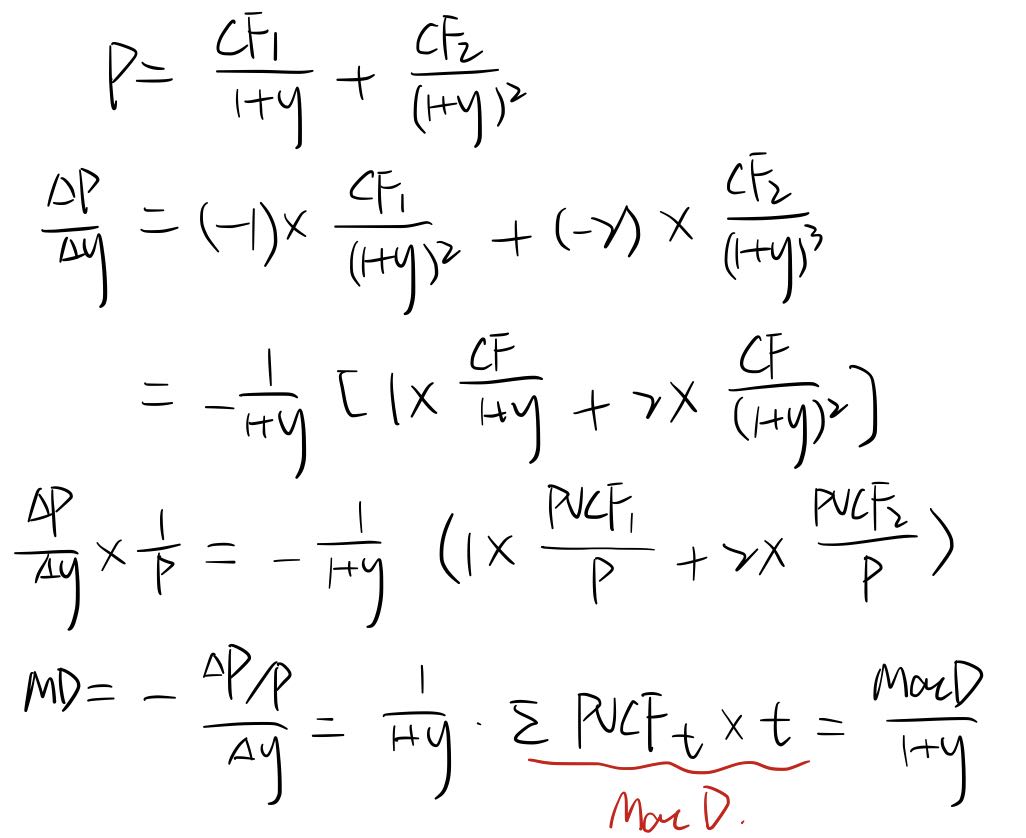 P = CF₁/(1+y) + CF₂/(1+y)²
ΔP/Δy = (-1) × CF₁/(1+y)² + (-2) × CF₂/(1+y)³
= -1/(1+y) [1 × CF/(1+y) + 2 × CF/(1+y)²]
ΔP/Δy × 1/P = - 1/(1+y) (1 × PVCF₁/P + 2 × PVCF₂/P)
MD = - (ΔP/P)/Δy = 1/(1+y) · Σ PVCF_t × t = MacD/(1+y)
MacD.